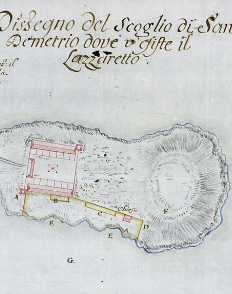 Dissegno del Scoglio di San
Demetrio dove v'esiste il
Lazzaretto.
il
a.
A
B
C
Chiesa
D
E
E
F
G.